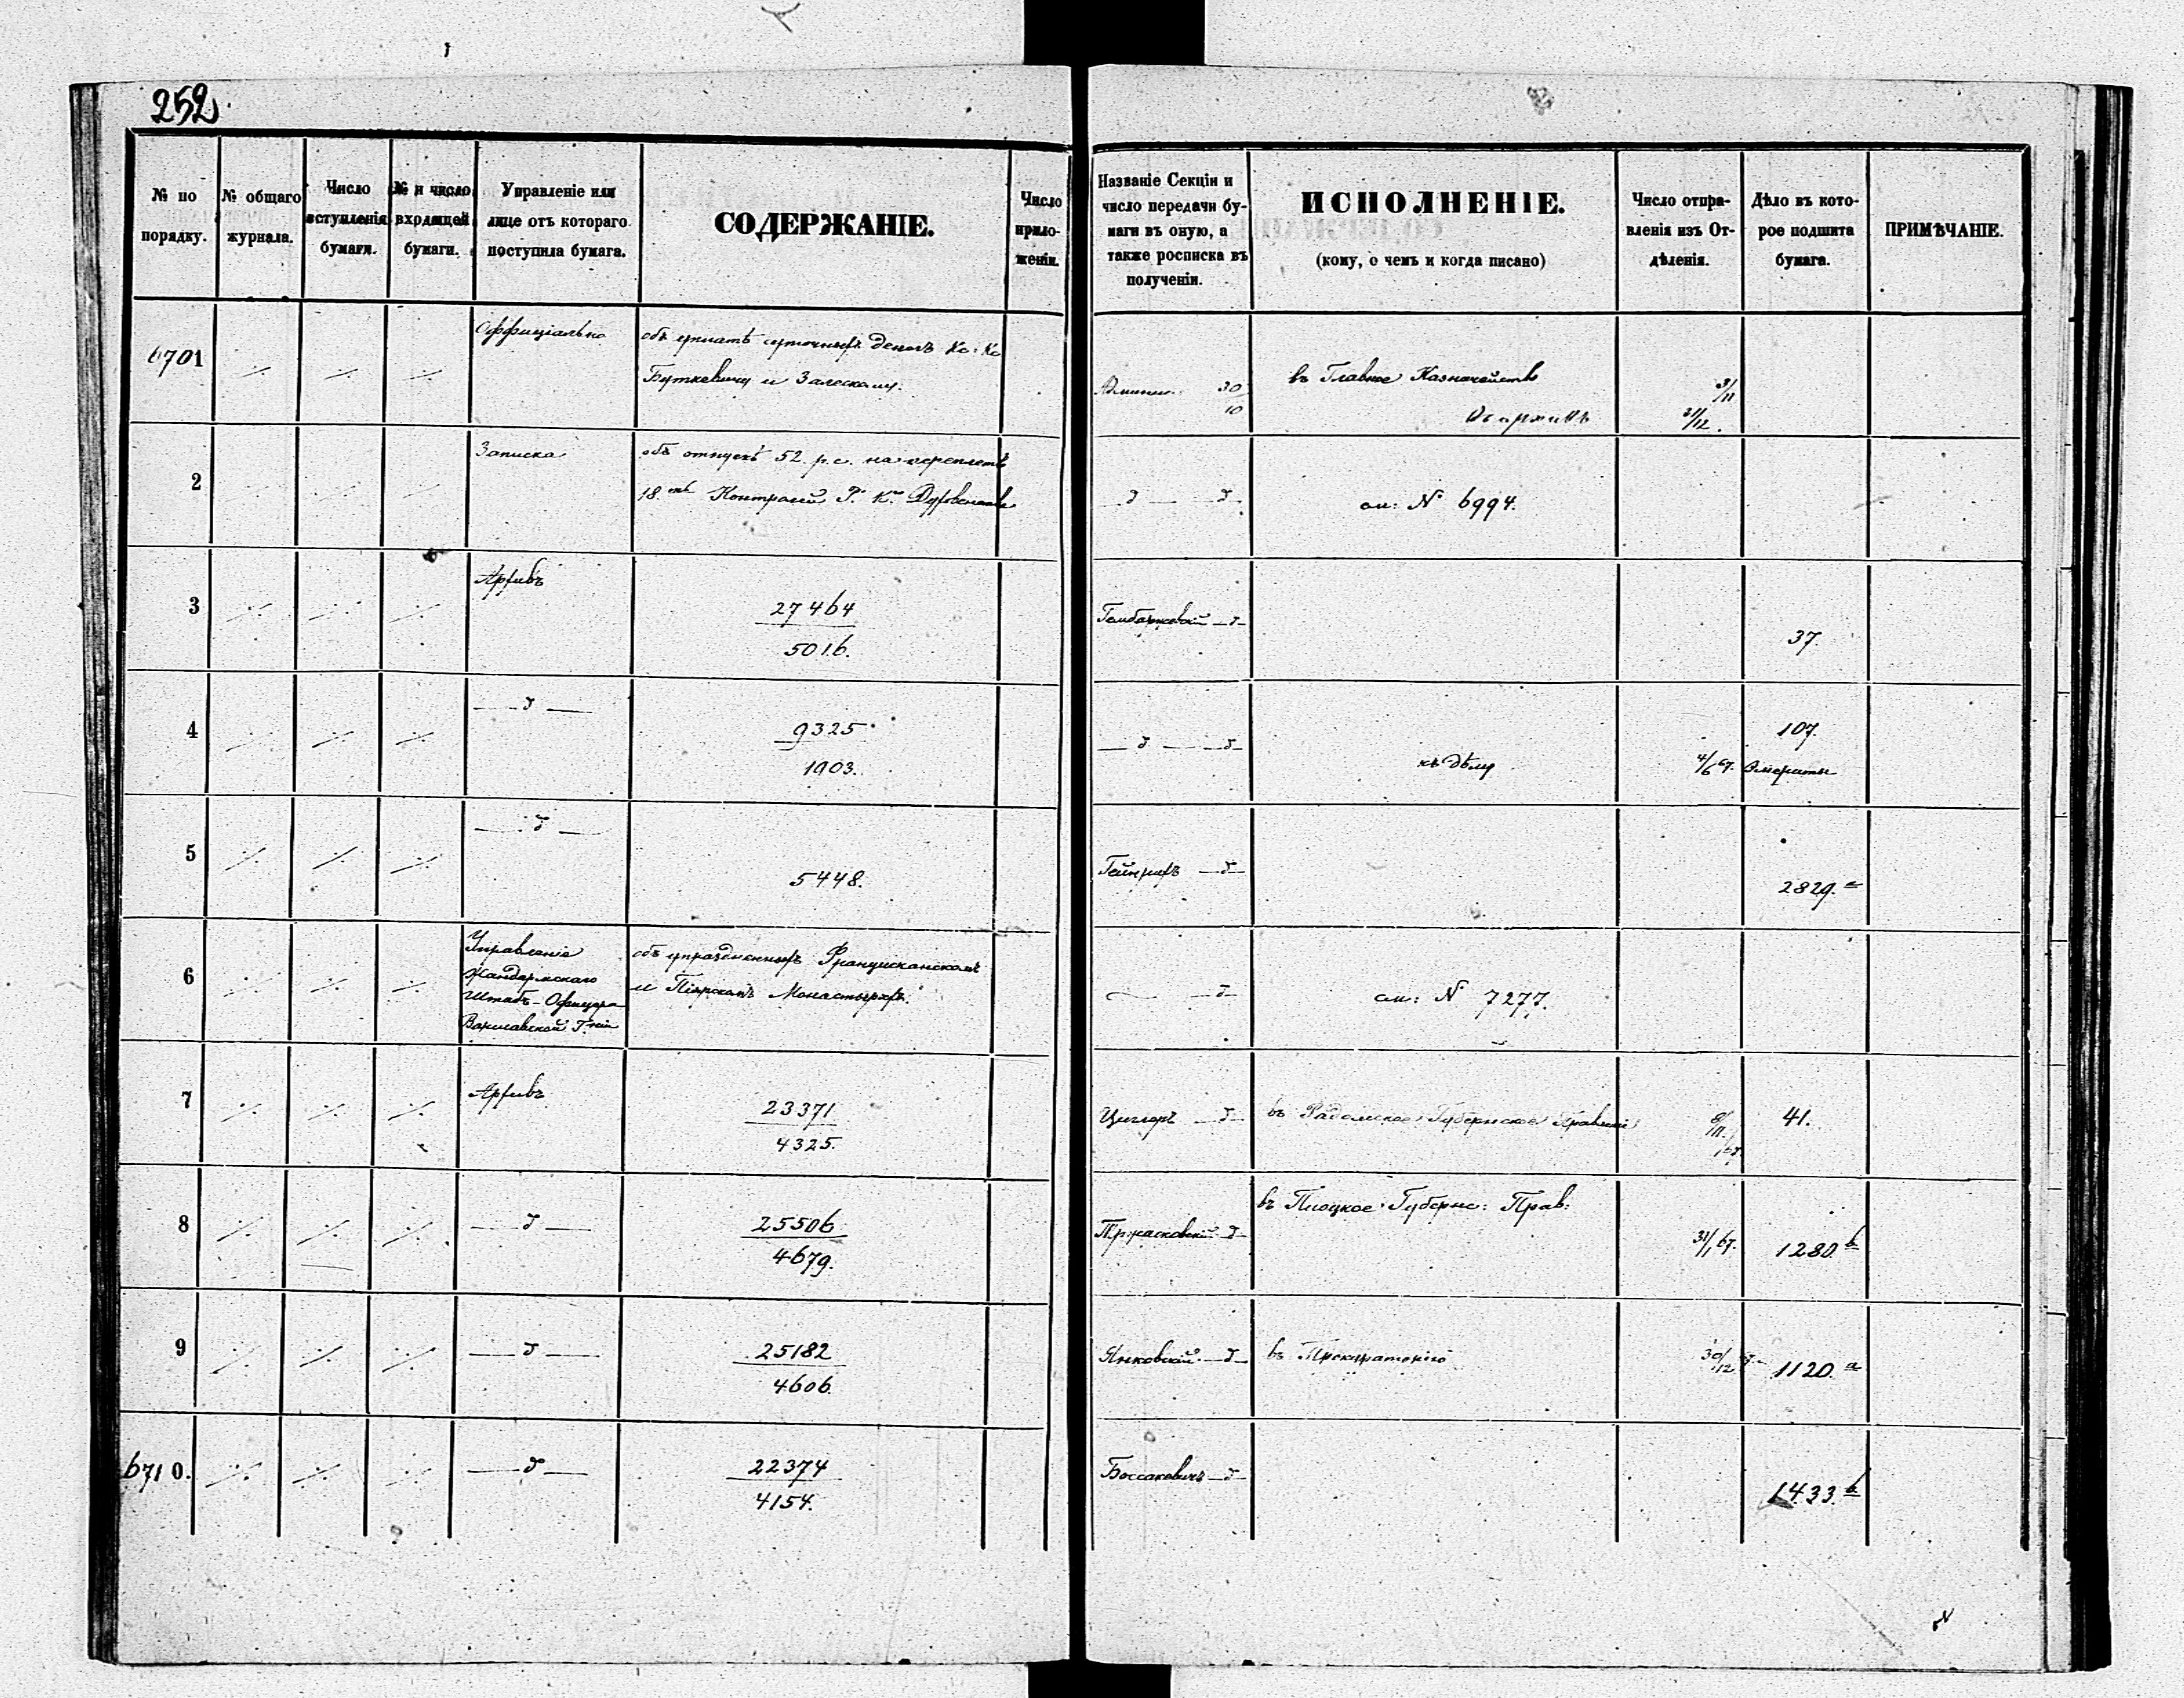 252.
№ по порядку.
№ общаго журнала.
Число вступленія бумаги.
№ и число входящей бумаги.
Управленіе или лице отъ котораго поступила бумага.
СОДЕРЖАНІЕ.
Число приложеній.
Названіе Секціи и число передачи бумаги въ оную, а также росписка въ полученіи.
ИСПОЛНЕНІЕ.
(кому, о чемъ и когда писано)
Число отправленія изъ Отдѣленія.
Дѣло въ которое подшита бумага.
ПРИМѢЧАНІЕ.
6701 ·/. ·/. ·/. Оффиціально объ уплатѣ суточныхъ денегъ Кс: Кс
Буткевичу и Залескому. 30/10 въ Главное Казначейство 9/11
31/12.
2 Записка объ отпускѣ 52 р. с. на переплетъ
18. Контролей Р. К. д д см: № 6994.
3 ·/. ·/. ·/. Архивъ 27464
5016. д 37.
4 ·/. ·/. ·/. д 9325
1903. д д къ дѣлу 4/6 67. 107.
Эмериты
5 ·/. ·/. ·/. д 5448. Гейнрихъ д 2829. а
6 ·/. ·/. ·/. Управленіе
Жандармскаго
Штабъ-Офицера
Варшавской Г-ніи
объ упраздненныхъ Францисканскомъ
и Піярскомъ Монастыряхъ. д см: № 7277.
7 ·/. ·/. ·/. Архивъ 23371
4325. Циглеръ д въ Радомское Губернское Правленіе 8/11 41.
8 ·/. ·/. ·/. д 25506
4679. Пржасковскій д въ Плоцкое Губернс: Прав: 31/1 67. 1280. b
9 ·/. ·/. ·/. д 25182
4606. Янковскій д въ Прокураторію 30/12 1120. а
6710. ·/. ·/. ·/. д 22374
4154. д 1433. b